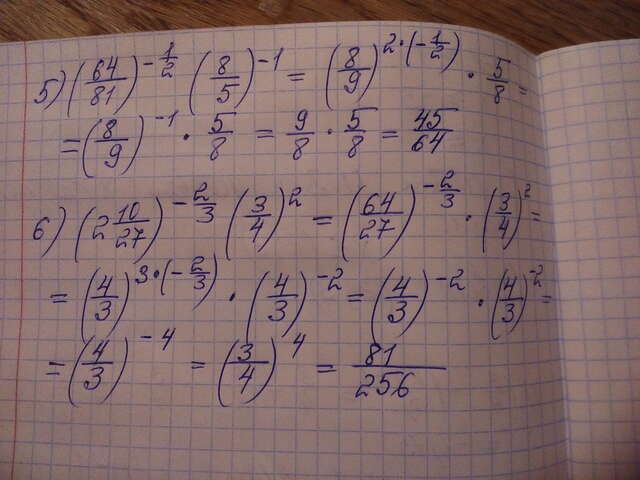 5) (64/81)^(-1/2) (8/5)^(-1) = (8/9)^(2·(-1/2)) · 5/8 =
= (8/9)^(-1) · 5/8 = 9/8 · 5/8 = 45/64
6) (2 10/27)^(-2/3) (3/4)^2 = (64/27)^(-2/3) · (3/4)^2 =
= (4/3)^(3·(-2/3)) · (4/3)^(-2) = (4/3)^(-2) · (4/3)^(-2) =
= (4/3)^(-4) = (3/4)^4 = 81/256